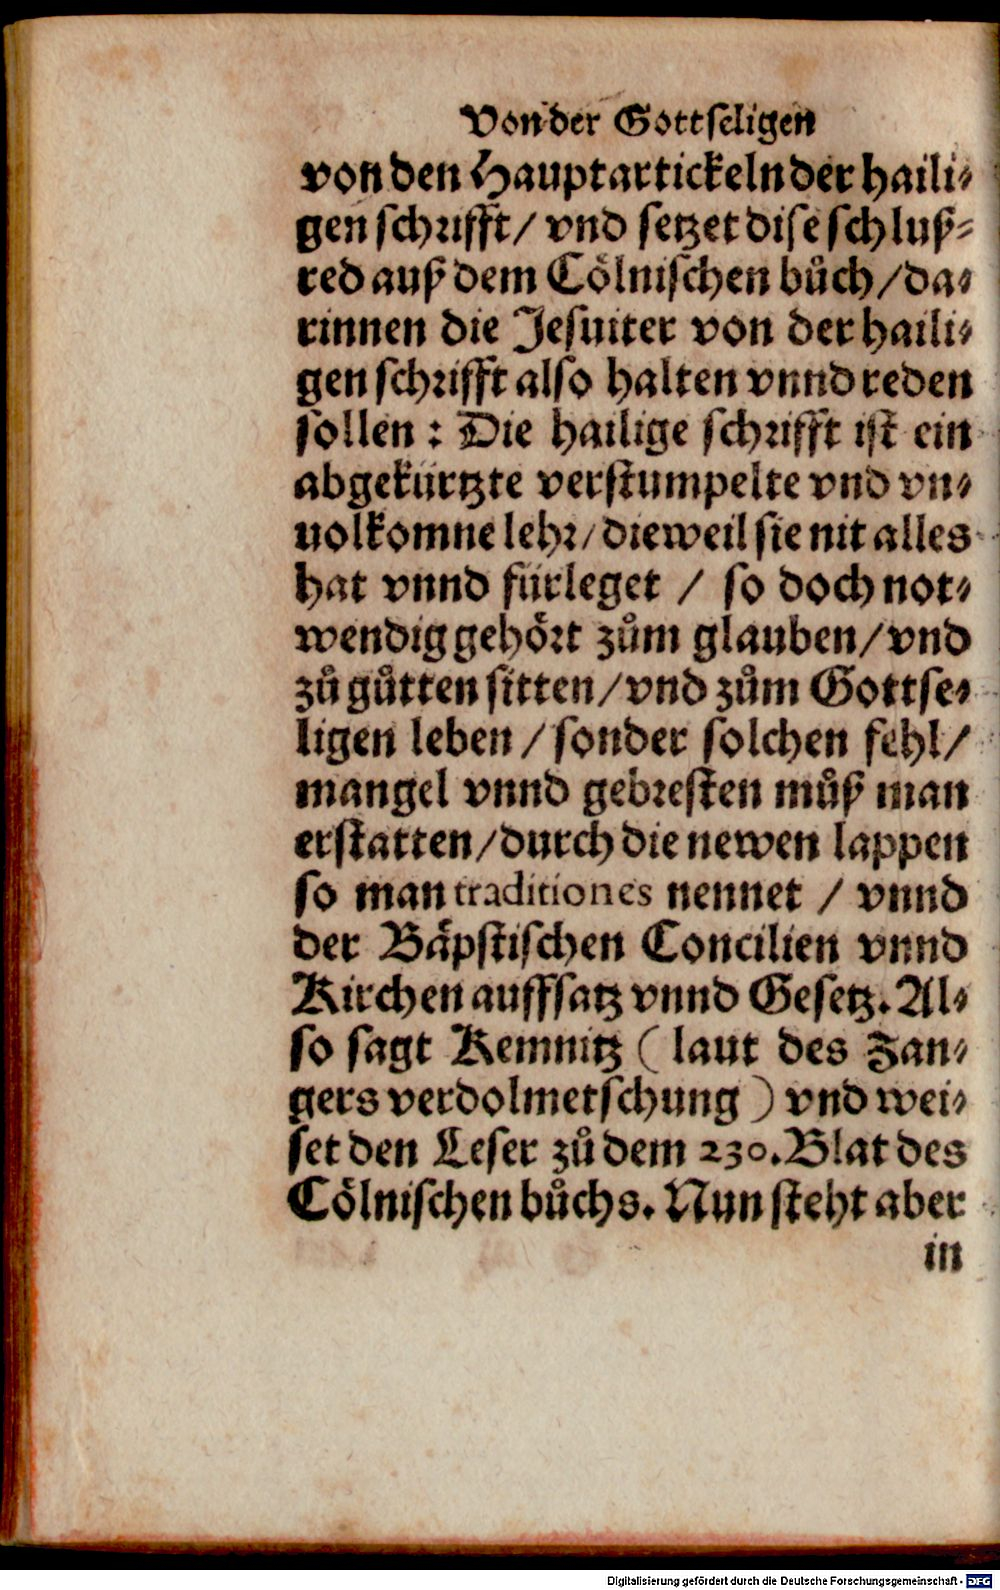 Von der Gottseligen
von den Hauptartickeln der haili-
gen schrifft / vnd setzet dise schluß-
red auß dem Cölnischen bůch / da-
rinnen die Jesuiter von der haili-
gen schrifft also halten vnnd reden
sollen : Die hailige schrifft ist ein
abgekürtzte verstumpelte vnd vn-
uolkomne lehr / dieweil sie nit alles
hat vnnd fürleget / so doch not-
wendig gehört zům glauben / vnd
zů gůtten sitten / vnd zům Gottse-
ligen leben / sonder solchen fehl /
mangel vnnd gebresten můß man
erstatten / durch die newen lappen
so man traditiones nennet / vnnd
der Bäpstischen Concilien vnnd
Kirchen auffsatz vnnd Gesetz. Al-
so sagt Kemnitz ( laut des Zan-
gers verdolmetschung ) vnd wei-
set den Leser zů dem 230. Blat des
Cölnischen bůchs. Nun steht aber
in
Digitalisierung gefördert durch die Deutsche Forschungsgemeinschaft - DFG